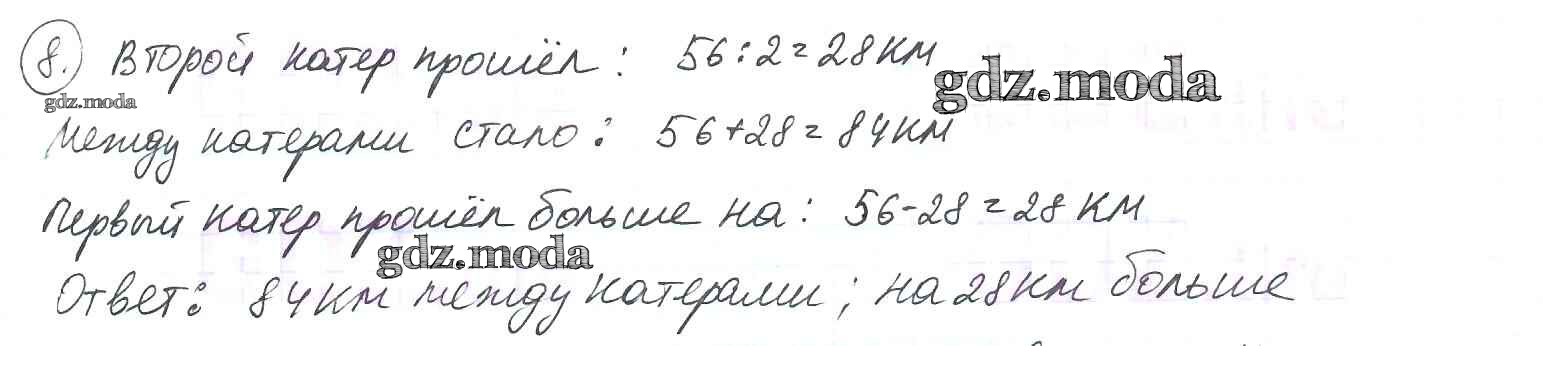 8. Второй катер прошёл: 56:2=28км
gdz.moda
gdz.moda
Между катерами стало: 56+28=84км
Первый катер прошёл больше на: 56-28=28 км
gdz.moda
Ответ: 84км между катерами; на 28км больше